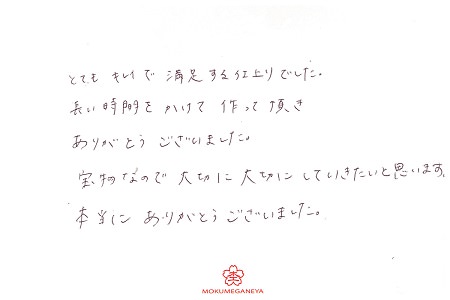 とても キレイで 満足する仕上りでした。
長い時間を かけて 作って 頂き
ありがとう ございました。
宝物なので 大切に 大切に していきたいと思います。
本当に ありがとう ございました。
MOKUMEGANEYA